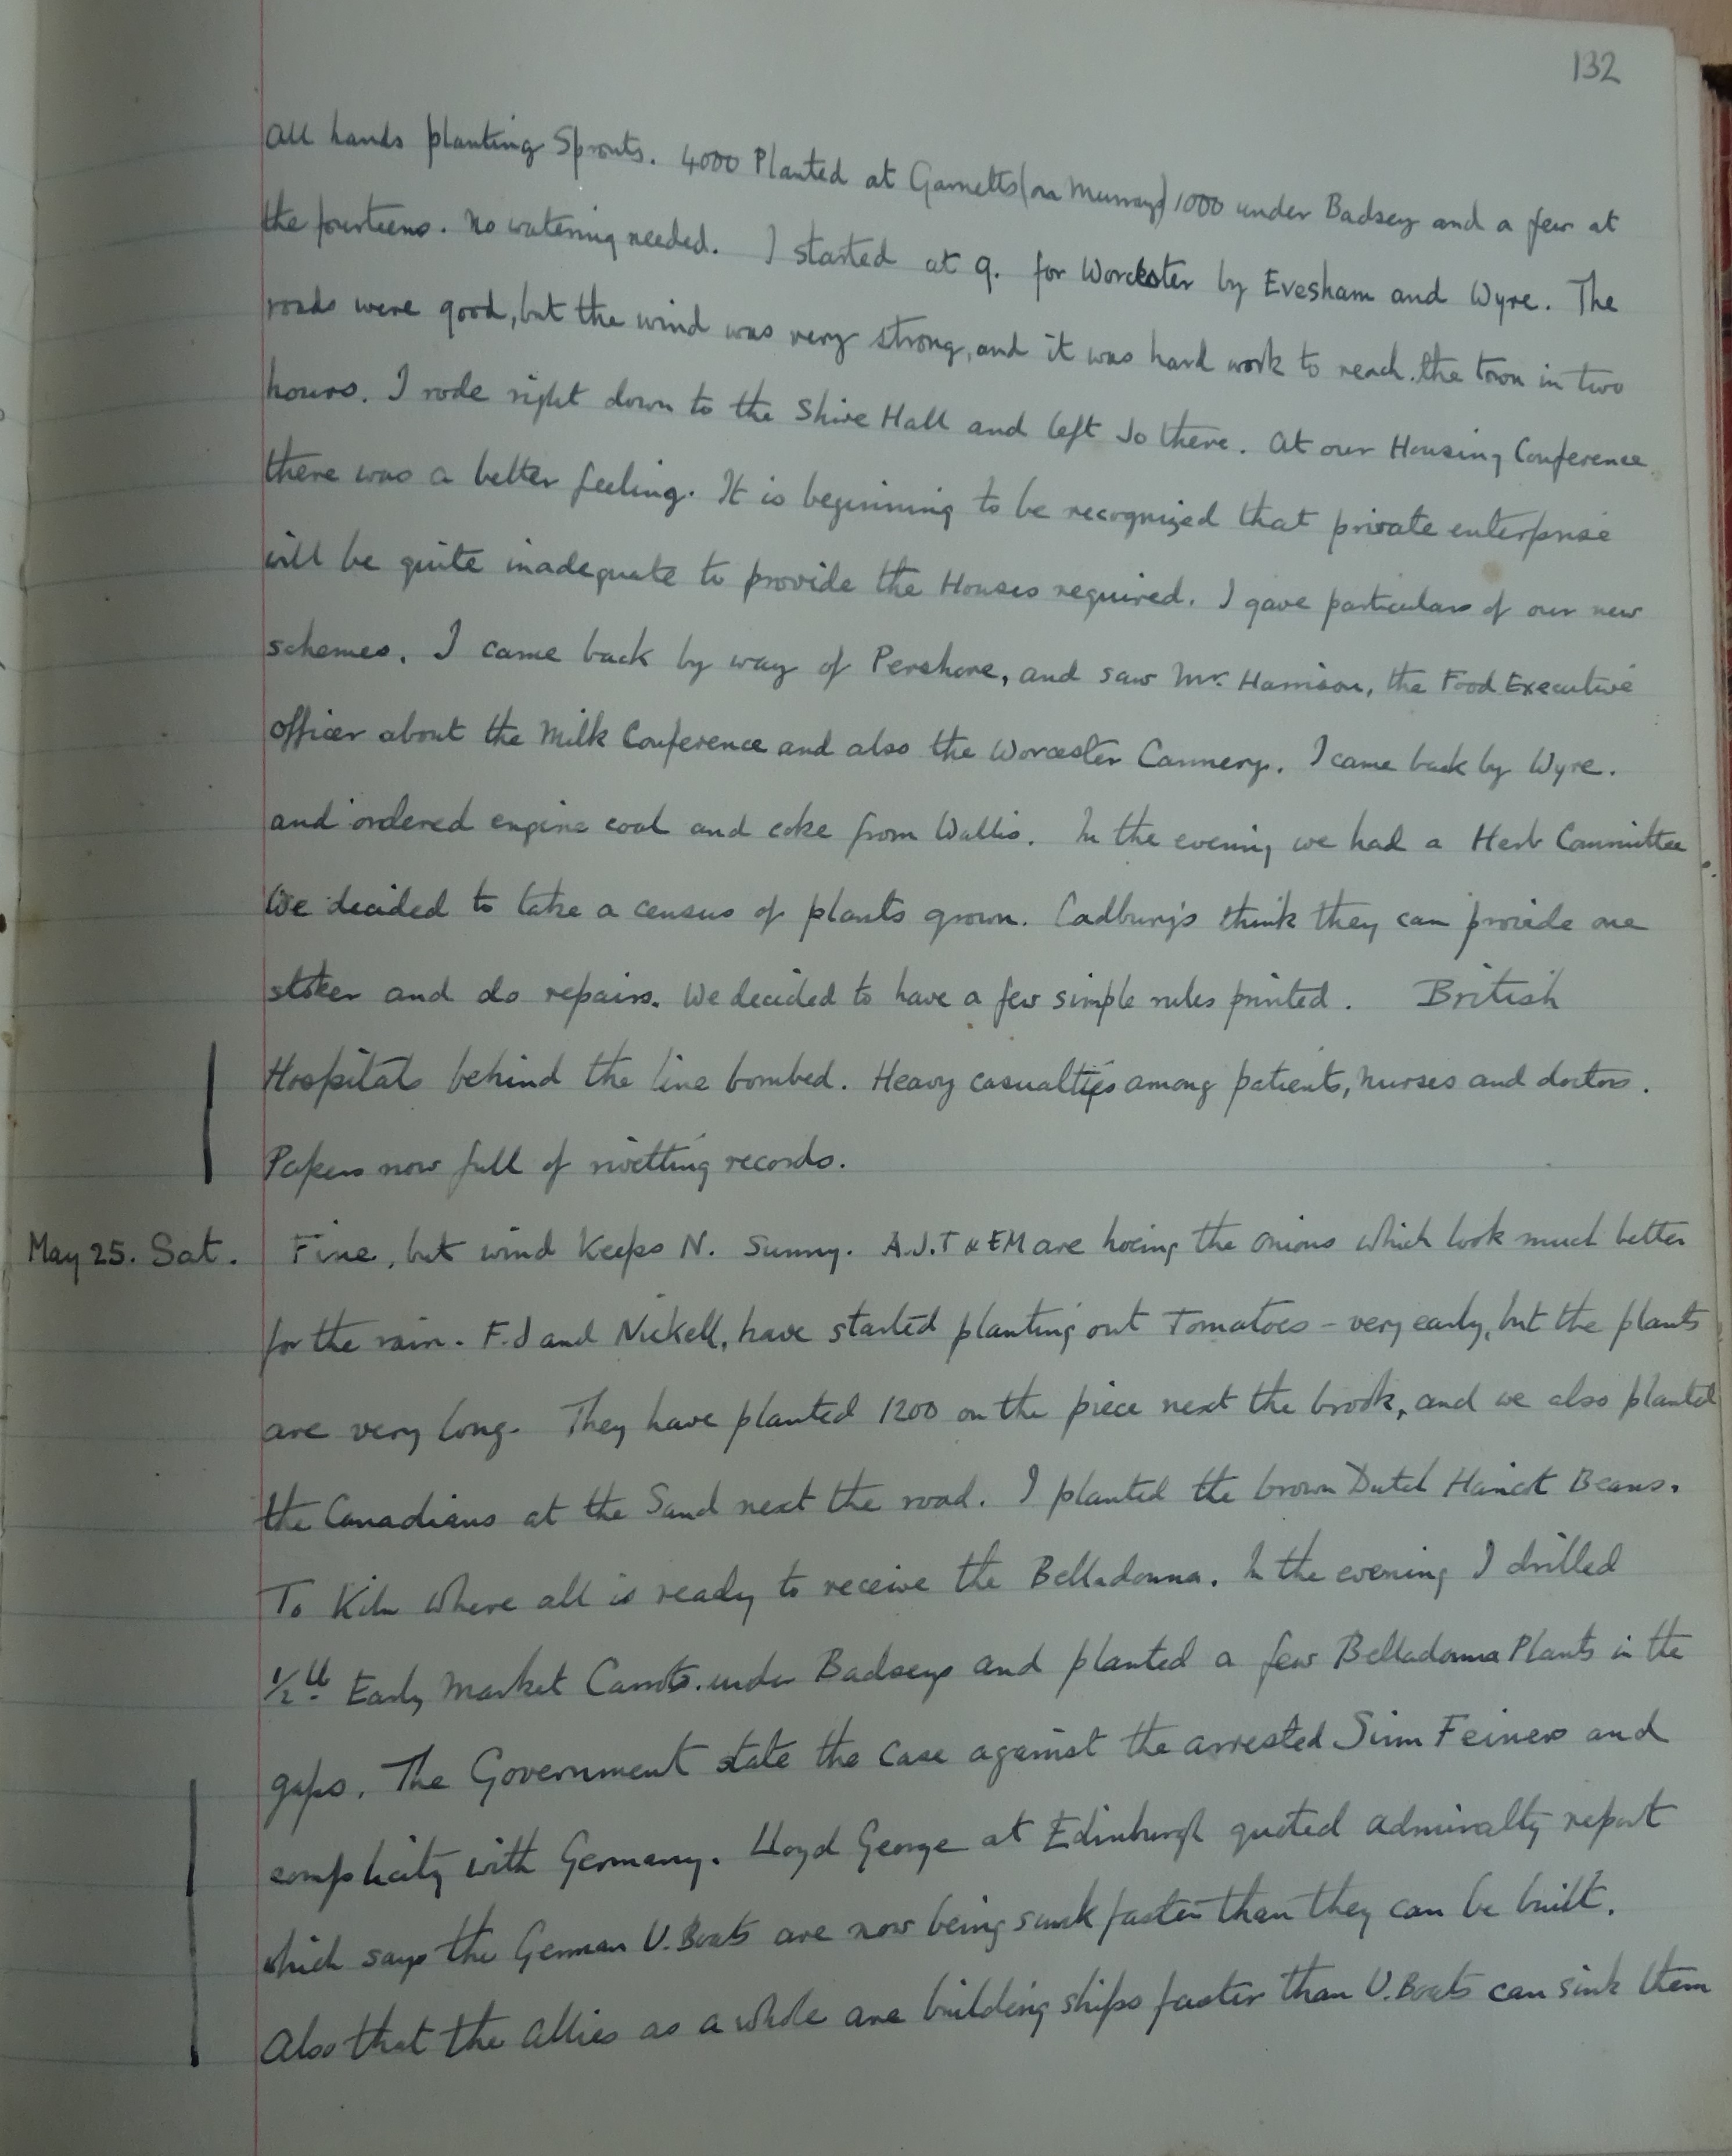 132
All hands planting Sprouts. 4000 Planted at Garnetts (on Murrays) 1000 under Badsey and a few at
the fourteens. No watering needed. I started at 9. for Worcester by Evesham and Wyre. The
roads were good, but the wind was very strong, and it was hard work to reach the town in two
hours. I rode right down to the Shire Hall and left Jo there. At our Housing Conference
there was a better feeling. It is beginning to be recognized that private enterprise
will be quite inadequate to provide the Houses required. I gave particulars of our new
schemes. I came back by way of Pershore, and saw Mr. Harrison, the Food Executive
Officer about the Milk Conference and also the Worcester Cannery. I came back by Wyre.
and ordered engine coal and coke from Wallis. In the evening we had a Herb Committee
We decided to take a census of plants grown. Cadburys think they can provide one
stoker and do repairs. We decided to have a few simple rules printed. British
Hospitals behind the line bombed. Heavy casualties among patients, nurses and doctors.
Papers now full of rivetting records.
May 25. Sat. Fine, but wind keeps N. Sunny. A.J.T & EM are hoeing the onions which look much better
for the rain. F.J and Nickell, have started planting out Tomatoes - very early, but the plants
are very long. They have planted 1200 on the piece next the brook, and we also planted
the Canadians at the Sand next the road. I planted the brown Dutch Haricot Beans.
To Kiln where all is ready to receive the Belladonna. In the evening I drilled
1/2 lb Early Market Carrots. under Badseys and planted a few Belladonna Plants in the
gaps. The Government state the case against the arrested Sinn Feiners and
complicity with Germany. Lloyd George at Edinburgh quoted admiralty report
which says the German U. Boats are now being sunk faster than they can be built.
Also that the Allies as a whole are building ships faster than U. Boats can sink them